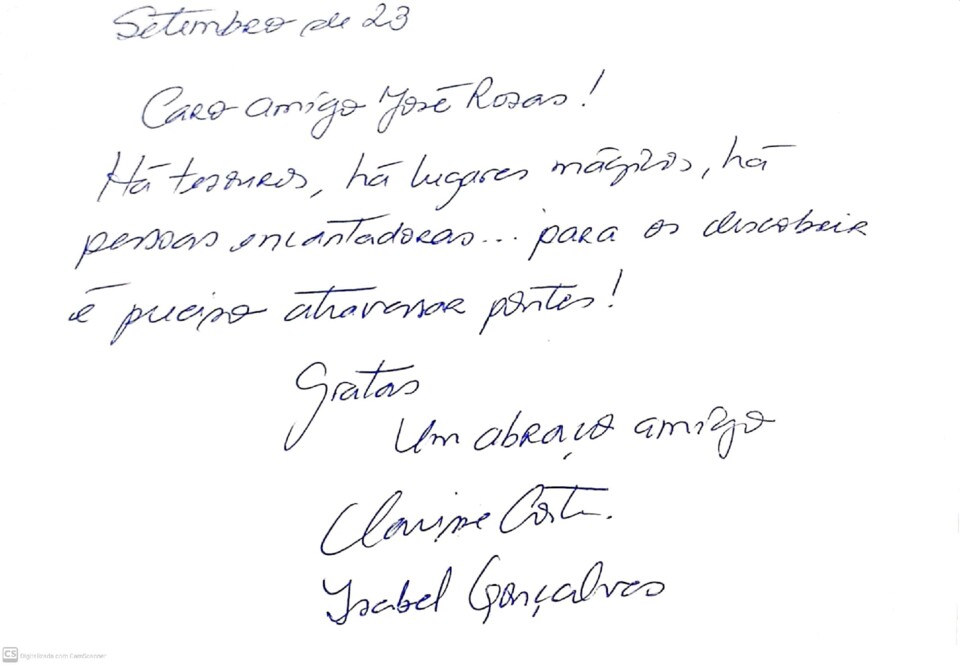 Setembro de 23
Caro amigo José Rosas!
Há tesouros, há lugares mágicos, há
pessoas encantadoras... para os descobrir
é preciso atravessar pontes!
Gratas
Um abraço amigo
Clarisse Costa.
Isabel Gonçalves
CS Digitalizada com CamScanner